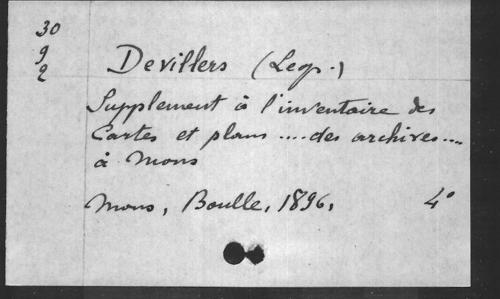 30
9
2
Devillers (Leop.)
Supplement à l'inventaire des
Cartes et plans ....des archives....
à Mons
Mons, Boulle, 1896, 4°